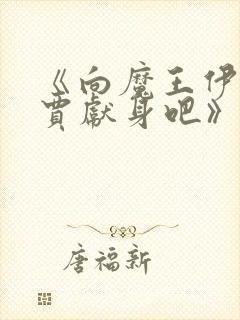 《向魔王伊
贾献身吧》
唐福新